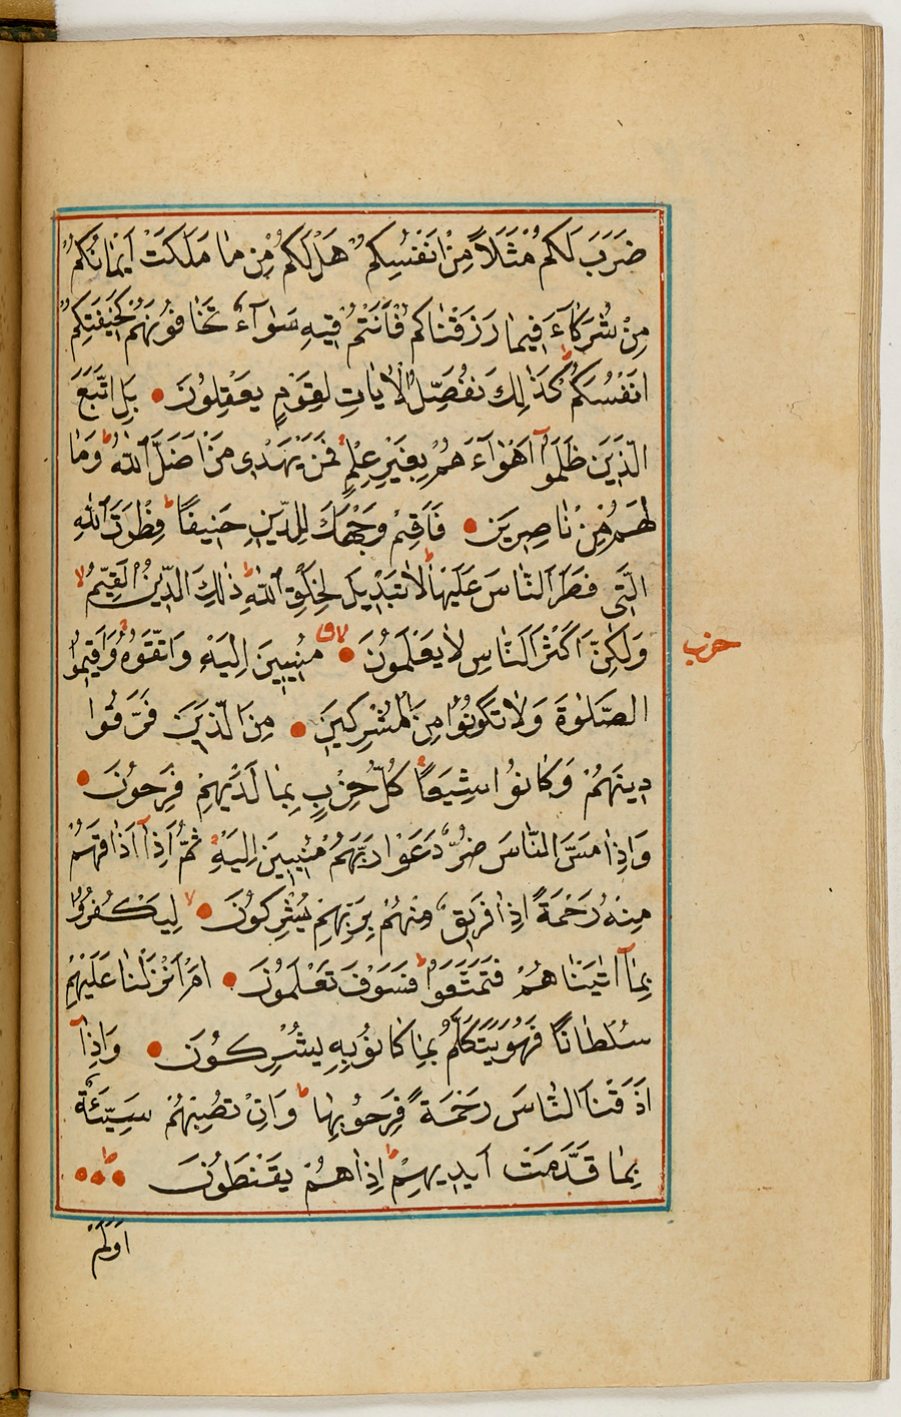 ضَرَبَ لَكُمْ مَثَلًا مِنْ اَنْفُسِكُمْ هَلْ لَكُمْ مِنْ مَا مَلَكَتْ اَيْمَانُكُمْ
مِنْ شُرَكَآءَ فِيمَا رَزَقْنَاكُمْ فَاَنْتُمْ فِيهِ سَوَآءٌ تَخَافُونَهُمْ كَخِيفَتِكُمْ
اَنْفُسَكُمْ ط كَذٰلِكَ نُفَصِّلُ الْاٰيَاتِ لِقَوْمٍ يَعْقِلُونَ • بَلِ اتَّبَعَ
الَّذِينَ ظَلَمُوٓا اَهْوَآءَهُمْ بِغَيْرِ عِلْمٍ فَمَنْ يَهْدِى مَنْ اَضَلَّ اللّٰهُ ط وَمَا
لَهُمْ مِنْ نَاصِرِينَ • فَاَقِمْ وَجْهَكَ لِلدِّينِ حَنِيفًا ط فِطْرَتَ اللّٰهِ
الَّتِى فَطَرَ النَّاسَ عَلَيْهَا ط لَا تَبْدِيلَ لِخَلْقِ اللّٰهِ ط ذٰلِكَ الدِّينُ الْقَيِّمُ لا
وَلٰكِنَّ اَكْثَرَ النَّاسِ لَا يَعْلَمُونَ • مُنِيبِينَ اِلَيْهِ وَاتَّقُوهُ وَاَقِيمُوا
حزب
الصَّلٰوةَ وَلَا تَكُونُوا مِنَ الْمُشْرِكِينَ • مِنَ الَّذِينَ فَرَّقُوا
دِينَهُمْ وَكَانُوا شِيَعًا ط كُلُّ حِزْبٍ بِمَا لَدَيْهِمْ فَرِحُونَ •
وَاِذَا مَسَّ النَّاسَ ضُرٌّ دَعَوْا رَبَّهُمْ مُنِيبِينَ اِلَيْهِ ثُمَّ اِذَآ اَذَاقَهُمْ
مِنْهُ رَحْمَةً اِذَا فَرِيقٌ مِنْهُمْ بِرَبِّهِمْ يُشْرِكُونَ • لا لِيَكْفُرُوا
بِمَآ اٰتَيْنَاهُمْ فَتَمَتَّعُوا ط فَسَوْفَ تَعْلَمُونَ • اَمْ اَنْزَلْنَا عَلَيْهِمْ
سُلْطَانًا فَهُوَ يَتَكَلَّمُ بِمَا كَانُوا بِهِ يُشْرِكُونَ • وَاِذَآ
اَذَقْنَا النَّاسَ رَحْمَةً فَرِحُوا بِهَا ط وَاِنْ تُصِبْهُمْ سَيِّئَةٌ
بِمَا قَدَّمَتْ اَيْدِيهِمْ ط اِذَا هُمْ يَقْنَطُونَ •••
اَوَلَمْ